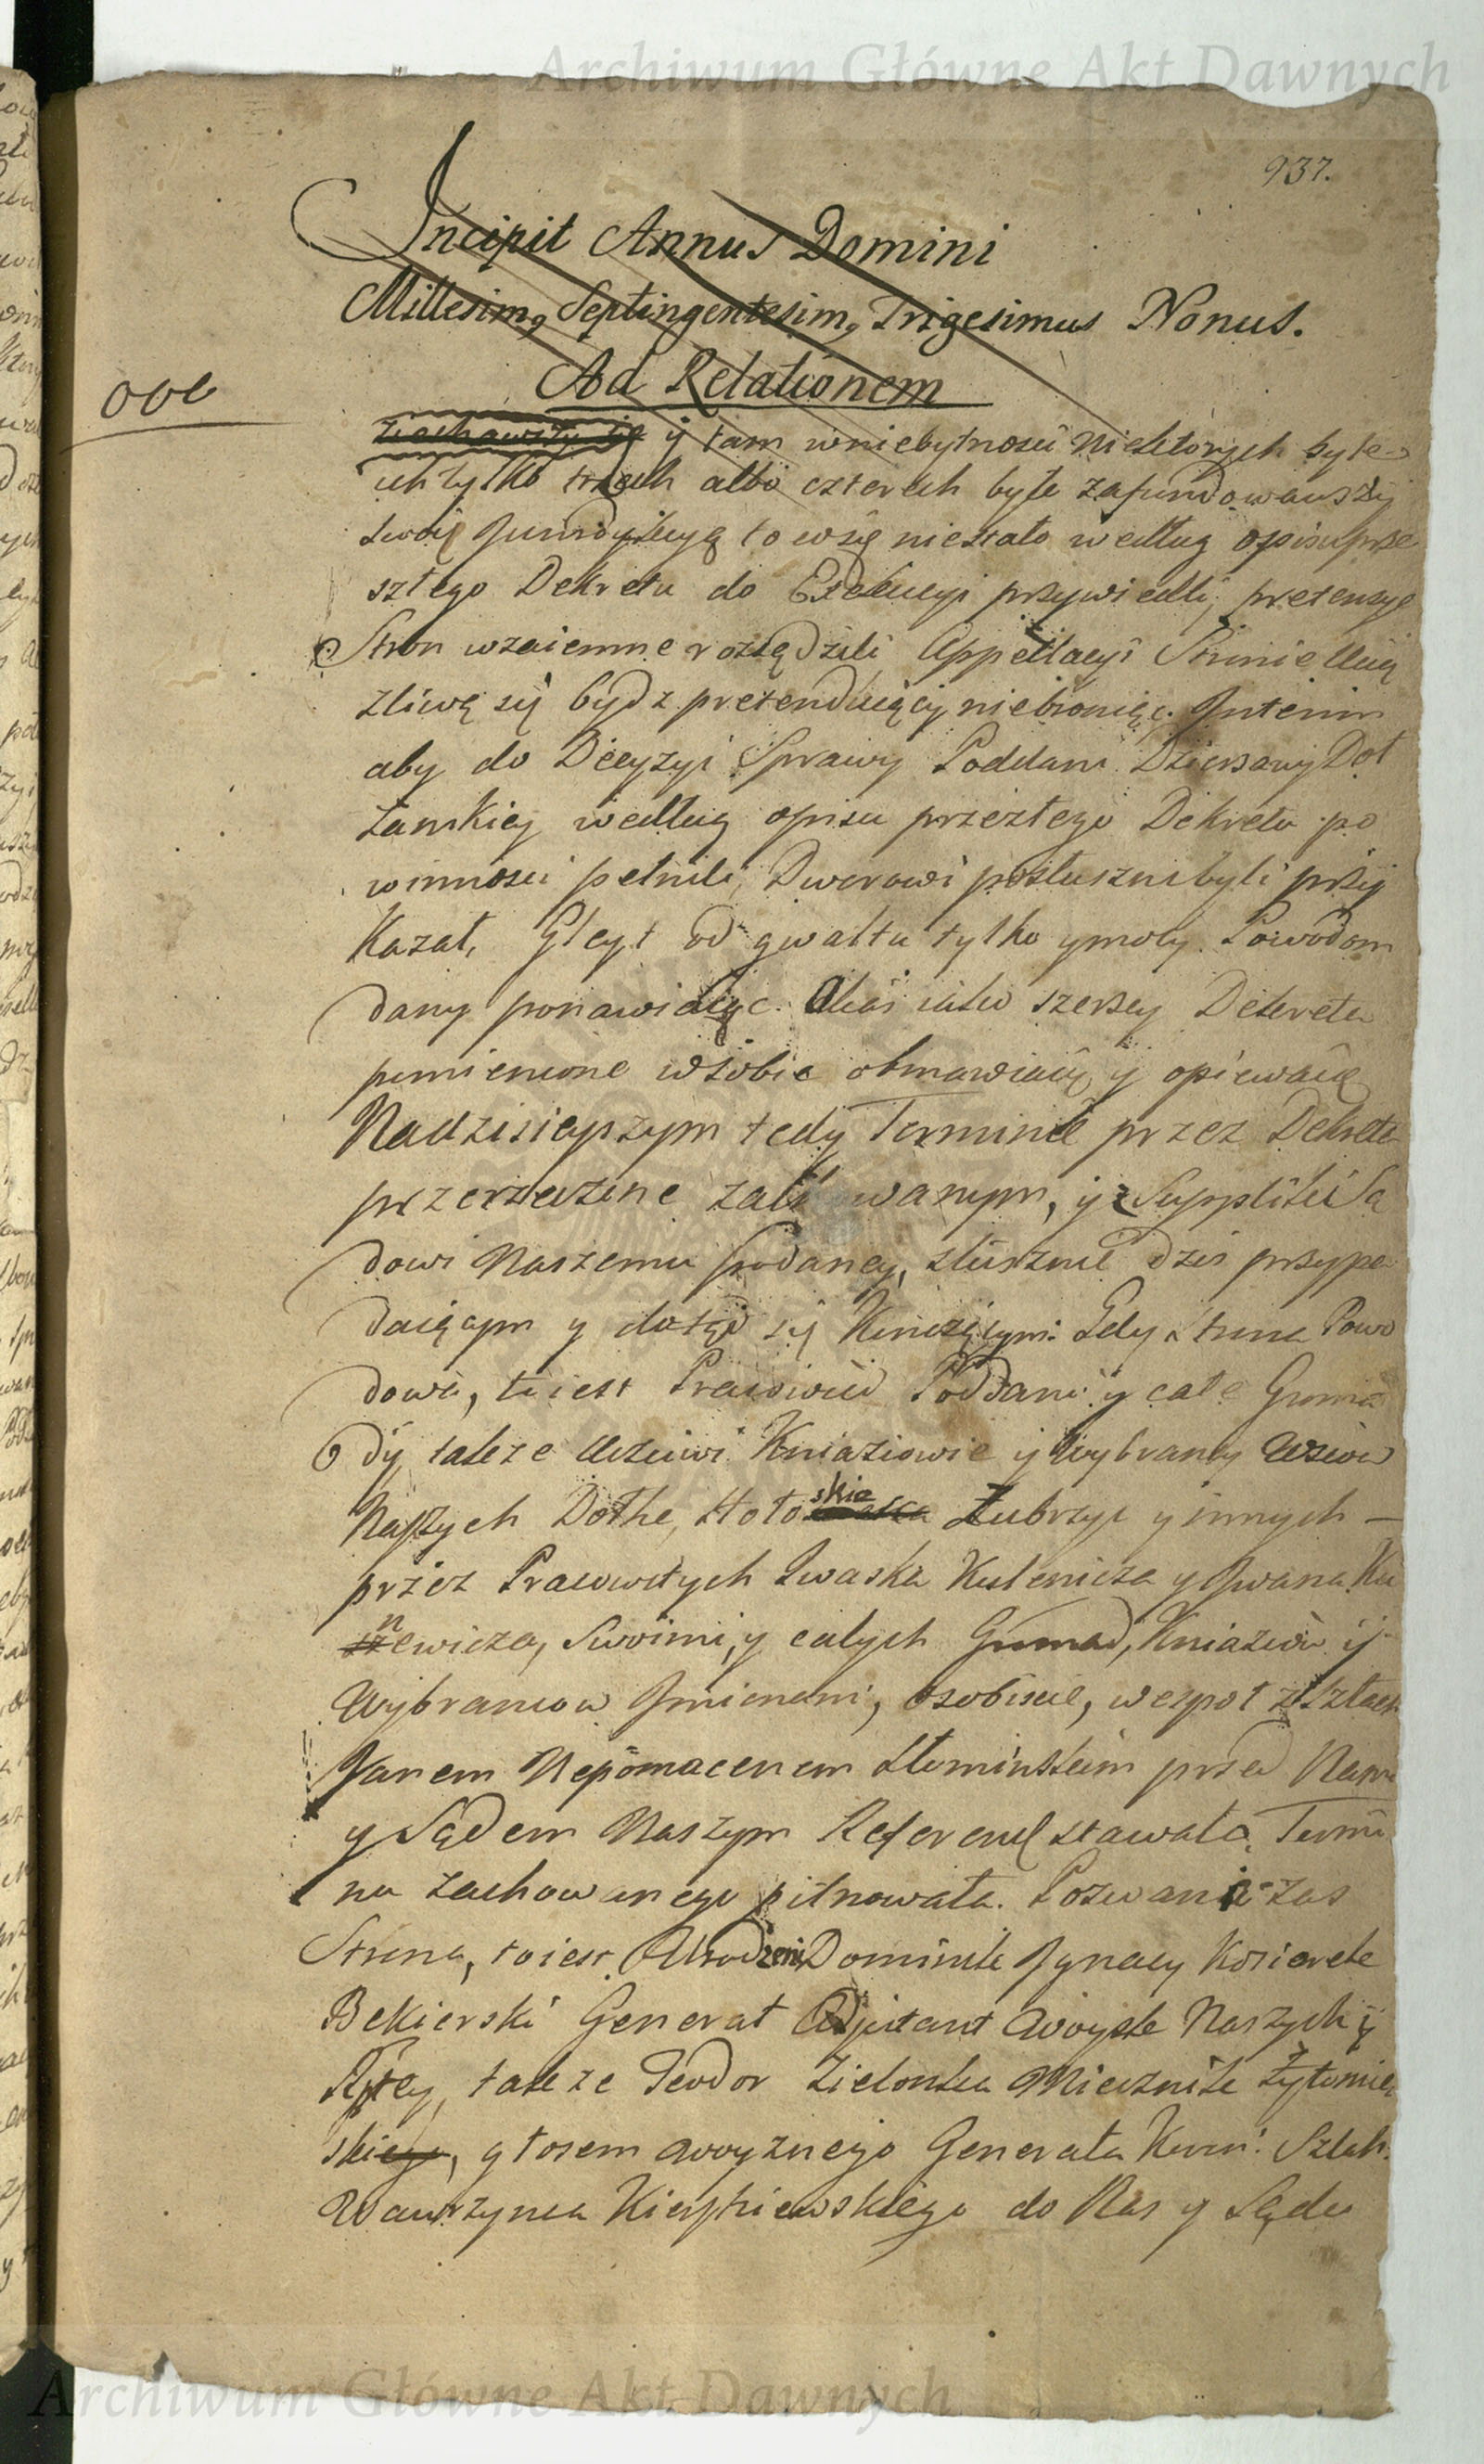 Archiwum Główne Akt Dawnych
937.
Incipit Annus Domini
Millesimo, Septingentesimo, Trigesimus Nonus.
Ad Relationem
ооо
y tam wniebytnosci Niektorych byle
ich tylko trzech albo czterech byle zafundowawszy
swoię Jurisdykcyą to wsię niestało według opisu prze
szłego Dekretu do Exekucyi przywiedli, pretensye
Stron wzaiemne rozsądzili Appellacyi Stronie
żliwą się bydz pretenduiącey niebroniąc. Interim
aby do Decyzyi Sprawy Poddani Dzierżawy Dol
żanskiey według opisu przeszłego Dekretu po
winnosci pełnili, Dworowi posłuszni byli przy
Kazał, Gleyt od gwałtu tylko y mocy Powodom
dany ponawiaiąc. iako szerzey Dekreta
pomienione wsobie obmawiaią y opiewaią
Nadzisieyszym tedy Terminie przez Dekreta
przerzeczone zali wanym, y z Suppliki Są
dowi Naszemu podaney, słusznie dzis przypa
daiącym y dotąd się Gdy Strona Powo
dowa, to iest Pracowici Poddani y całe Groma
dy także Uczciwi Kniaziowie y Wybrancy Wsiow
Naszych Dołhe, Hołoskie Zubrzyc y innych —
przez Pracowitych Iwaska Kulenicza y Iwana Ku
newicza, Swoimi, y całych Gromad, Kniaziow y
Wybrancow Imieniem, osobiscie, wespoł z Szlach
Janem Nepomacenem Słominskim przed Nami
y Sądem Naszym Referend stawała, Termi
nu zachowanego pilnowała. Pozwana zas
Strona, to iest Urodzeni Dominik Ignacy Kosiorek
Bekierski Generał Adjutant Woysk Naszych y
Rptey, także Teodor Zielonka Miecznik Zytomir
ski, głosem Woyznego Generała Koron: Szlach.
Wawrzynca do Nas y Sądu
Archiwum Główne Akt Dawnych